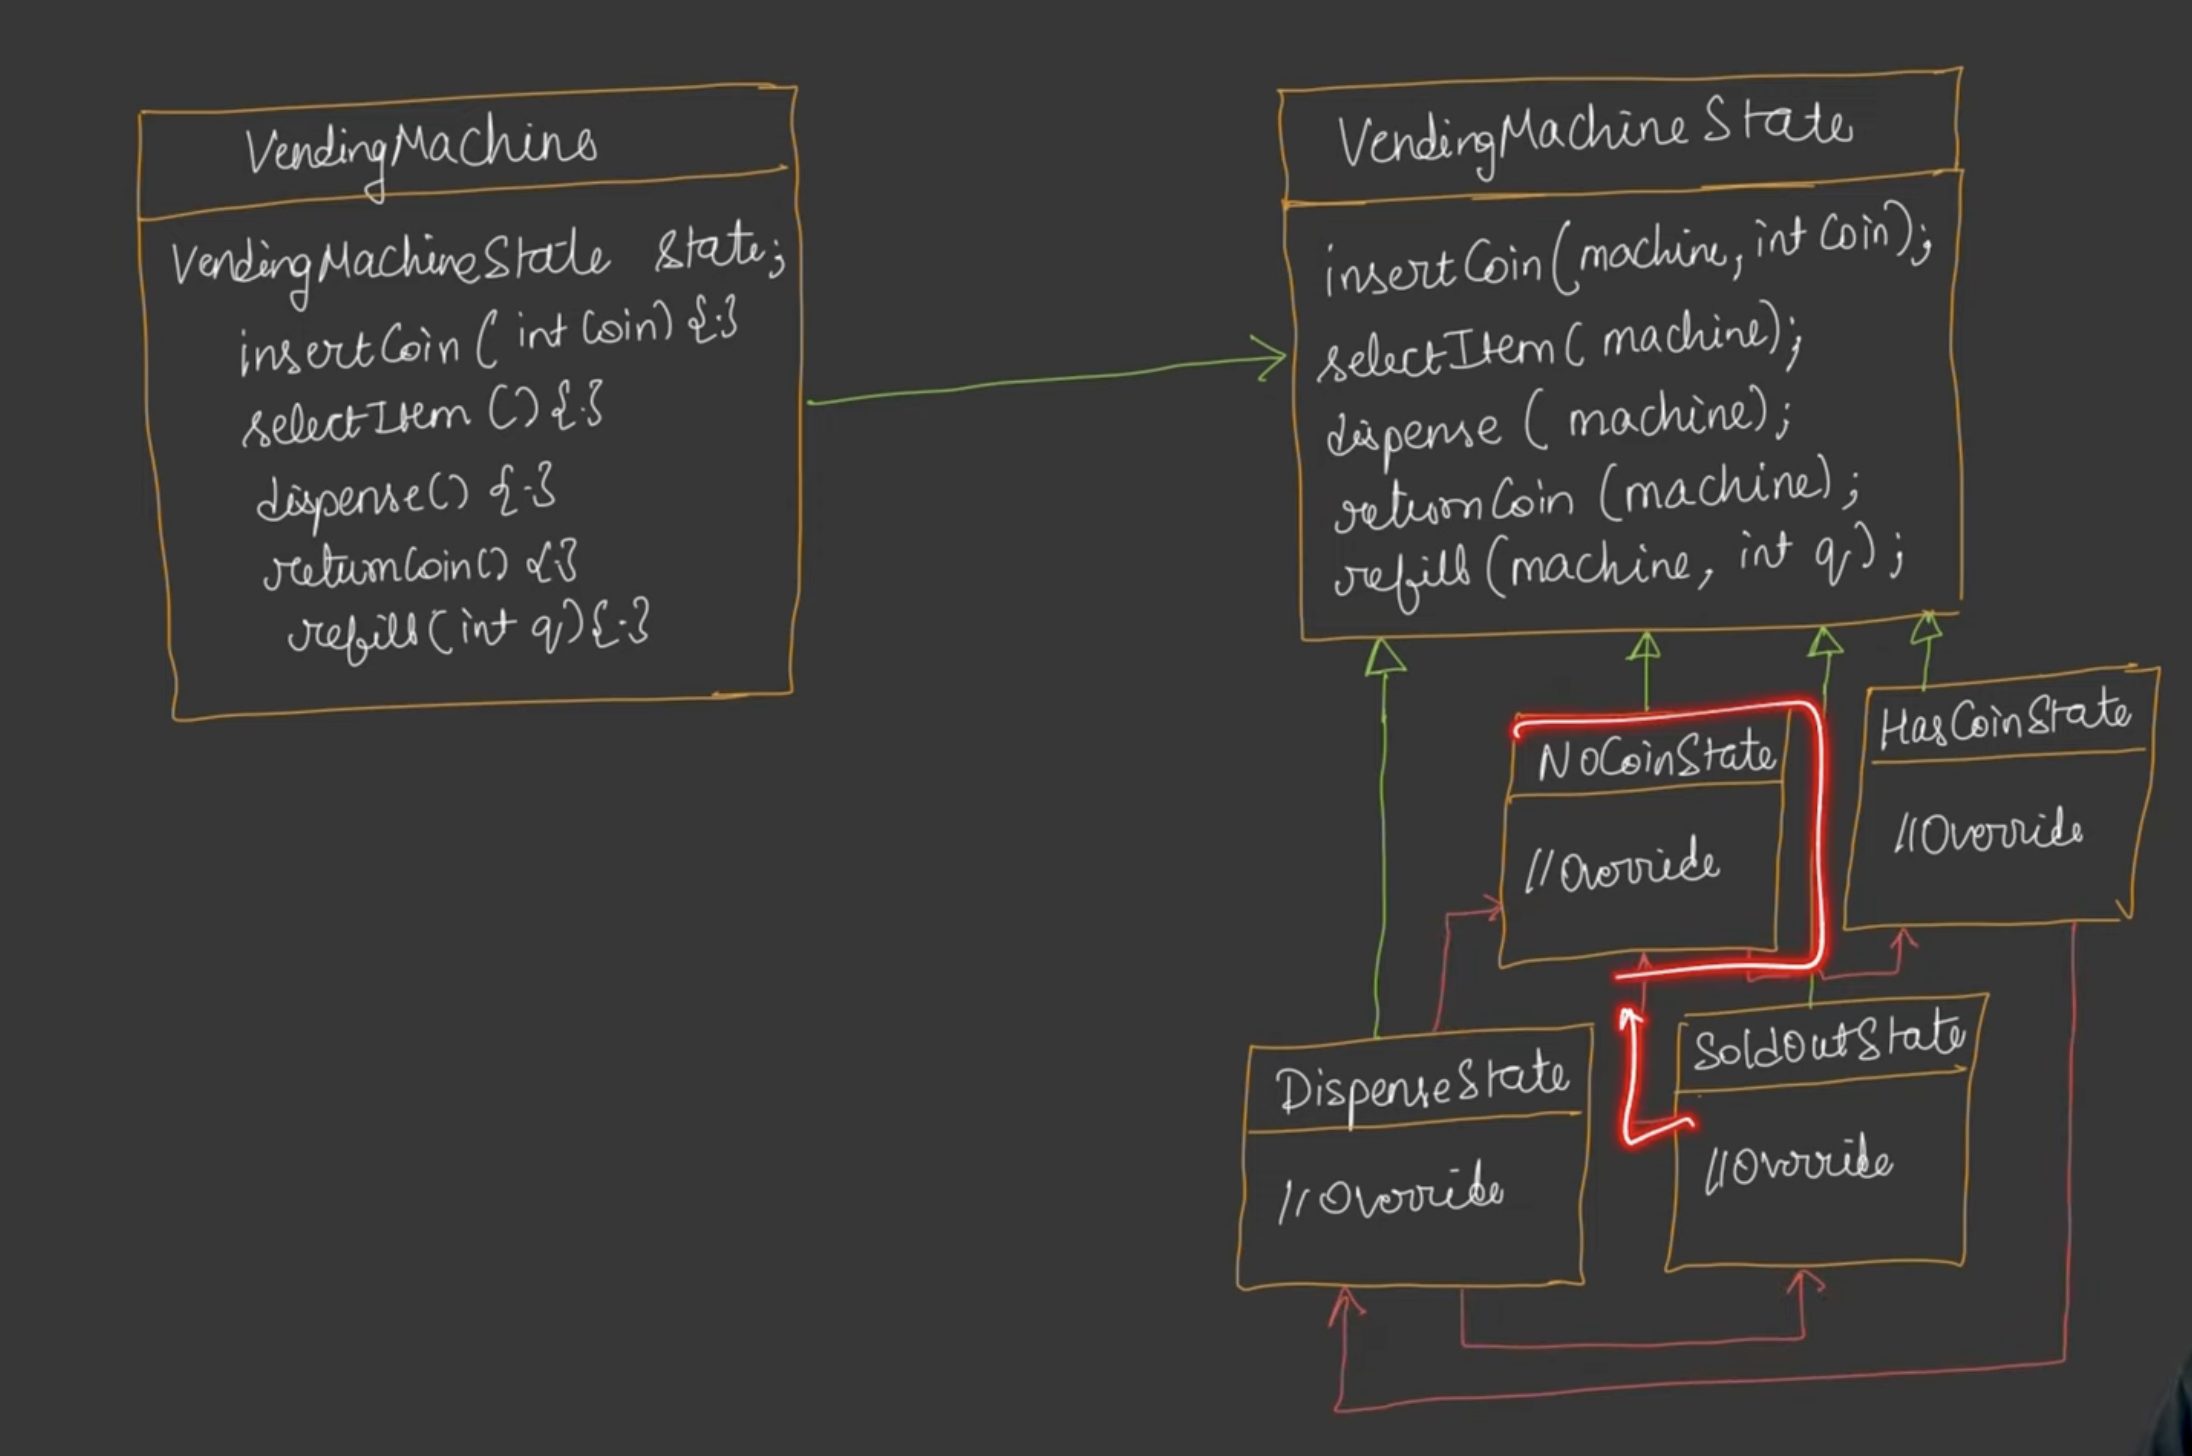 VendingMachine
VendingMachineState state;
insertCoin( int Coin) {.}
selectItem () {.}
dispense() {.}
returnCoin() {.}
refill(int q) {.}
VendingMachineState
insertCoin(machine, int Coin);
selectItem( machine);
dispense ( machine);
returnCoin (machine);
refill (machine, int q);
NoCoinState
//Override
HasCoinState
//Override
DispenseState
//Override
SoldOutState
//Override